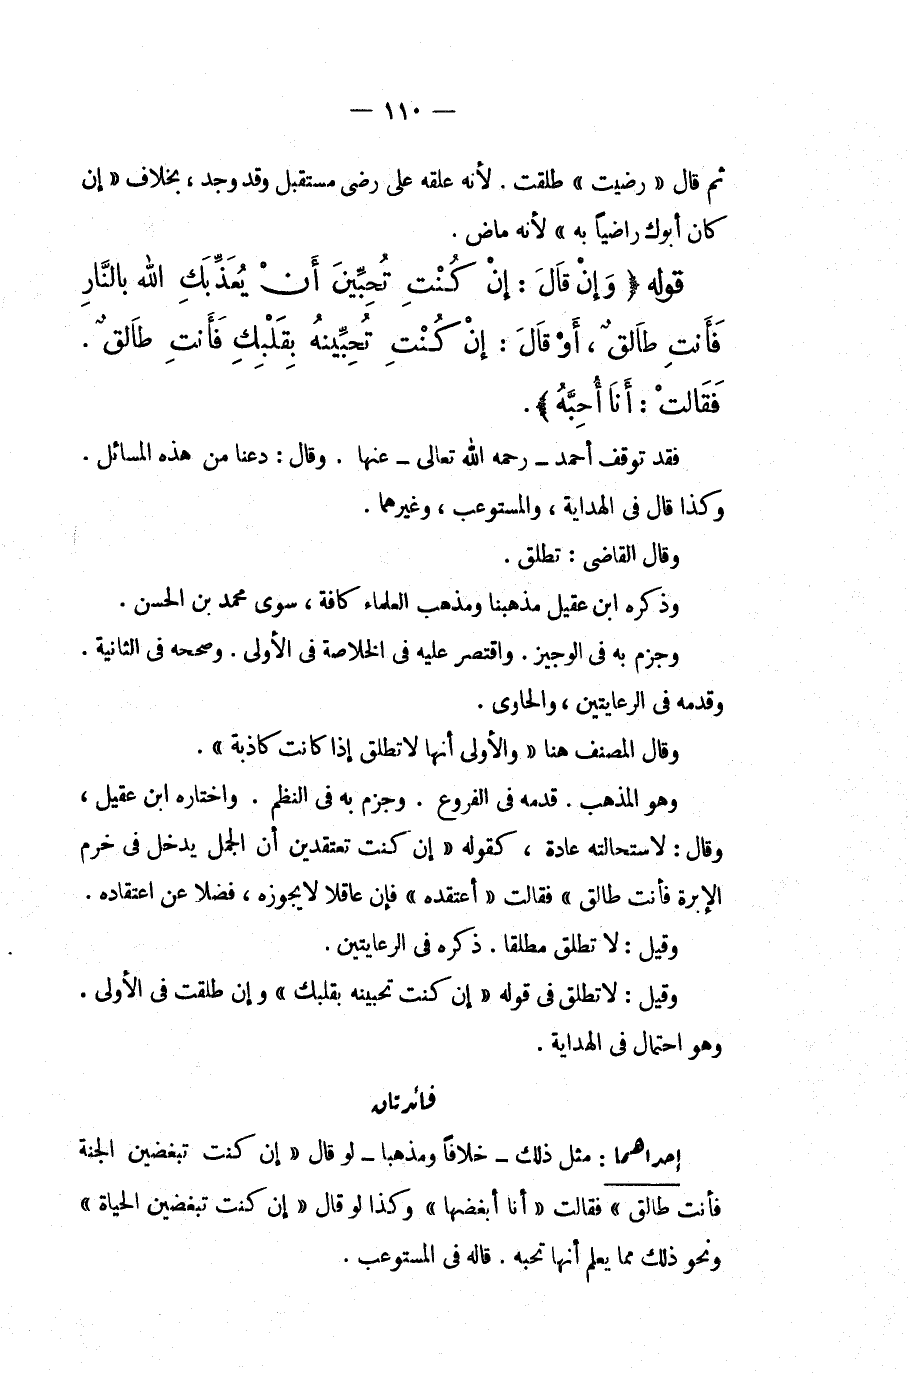 — ١١٠ —
ثم قال « رضيت » طلقت . لأنه علقه على رضى مستقبل وقد وجد ، بخلاف « إن
كان أبوك راضياً به » لأنه ماض .
قوله ﴿ وَإِنْ قَالَ : إِنْ كُنْتِ تُحِبِّينَ أَنْ يُعَذِّبَكِ الله بالنَّارِ
فَأَنتِ طاَلقٌ ، أَوْ قَالَ : إِنْ كُنْتِ تُحِبِّينهُ بِقَلْبِكِ فَأَنتِ طاَلقٌ .
فَقَالتْ : أَنَا أُحِبُّهُ ﴾ .
فقد توقف أحمد ــ رحمه الله تعالى ــ عنها . وقال : دعنا من هذه المسائل .
وكذا قال فى الهداية ، والمستوعب ، وغيرهما .
وقال القاضى : تطلق .
وذكره ابن عقيل مذهبنا ومذهب العلماء كافة ، سوى محمد بن الحسن .
وجزم به فى الوجيز . واقتصر عليه فى الخلاصة فى الأولى . وصححه فى الثانية .
وقدمه فى الرعايتين ، والحاوى .
وقال المصنف هنا « والأولى أنها لا تطلق إذا كانت كاذبة » .
وهو المذهب . قدمه فى الفروع . وجزم به فى النظم . واختاره ابن عقيل ،
وقال : لاستحالته عادة ، كقوله « إن كنت تعتقدين أن الجمل يدخل فى خرم
الإبرة فأنت طالق » فقالت « أعتقده » فإن عاقلا لا يجوزه ، فضلا عن اعتقاده .
وقيل : لا تطلق مطلقا . ذكره فى الرعايتين .
وقيل : لا تطلق فى قوله « إن كنت تحبينه بقلبك » وإن طلقت فى الأولى .
وهو احتمال فى الهداية .
فائدتان
إحداهما : مثل ذلك ــ خلافاً ومذهبا ــ لو قال « إن كنت تبغضين الجنة
فأنت طالق » فقالت « أنا أبغضها » وكذا لو قال « إن كنت تبغضين الحياة »
ونحو ذلك مما يعلم أنها تحبه . قاله فى المستوعب .